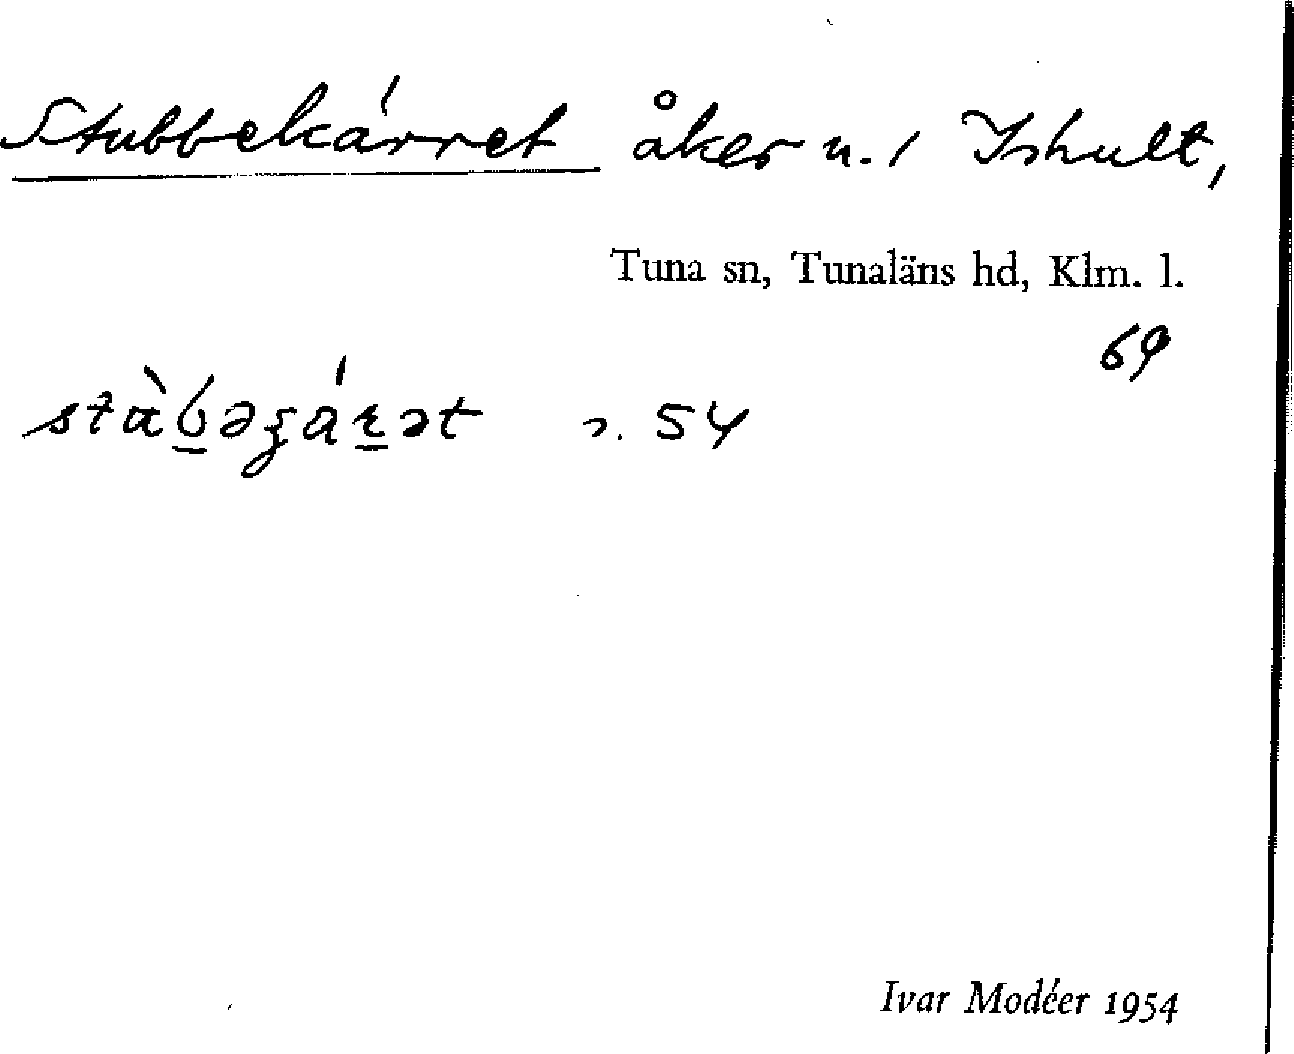 Stubbekärret åker u. / Ishult,
Tuna sn, Tunaläns hd, Klm. l.
69
s. 54
Ivar Modéer 1954